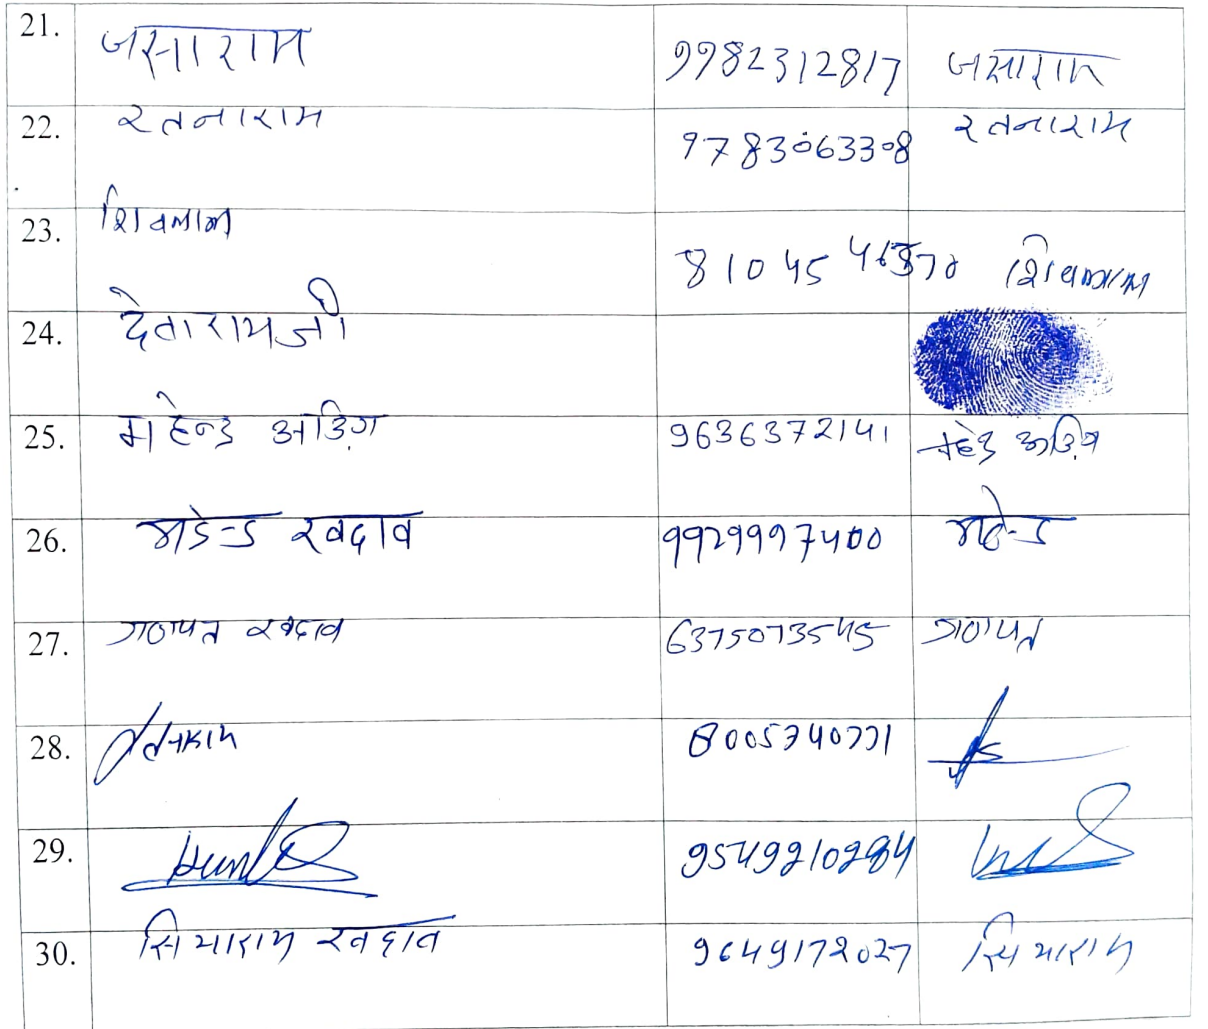 21. जसाराम 9982312817 जसाराम
22. रतनाराम 9783063308 रतनाराम
23. शिवलाल 81045 शिवलाल
24. देवारामजी
25. महेन्द्र अडिग 9636372141 महेंद्र अडिग
26. महेन्द्र खदाव 9929997400 महेन्द्र
27. गणपत खदाव 6375073545 गणपत
28.
29. 9549210284
30. सियाराम खदाव 9649172027 सियाराम